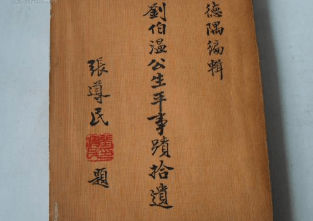 德隅編輯
劉伯溫公生平事蹟拾遺
張導民
題